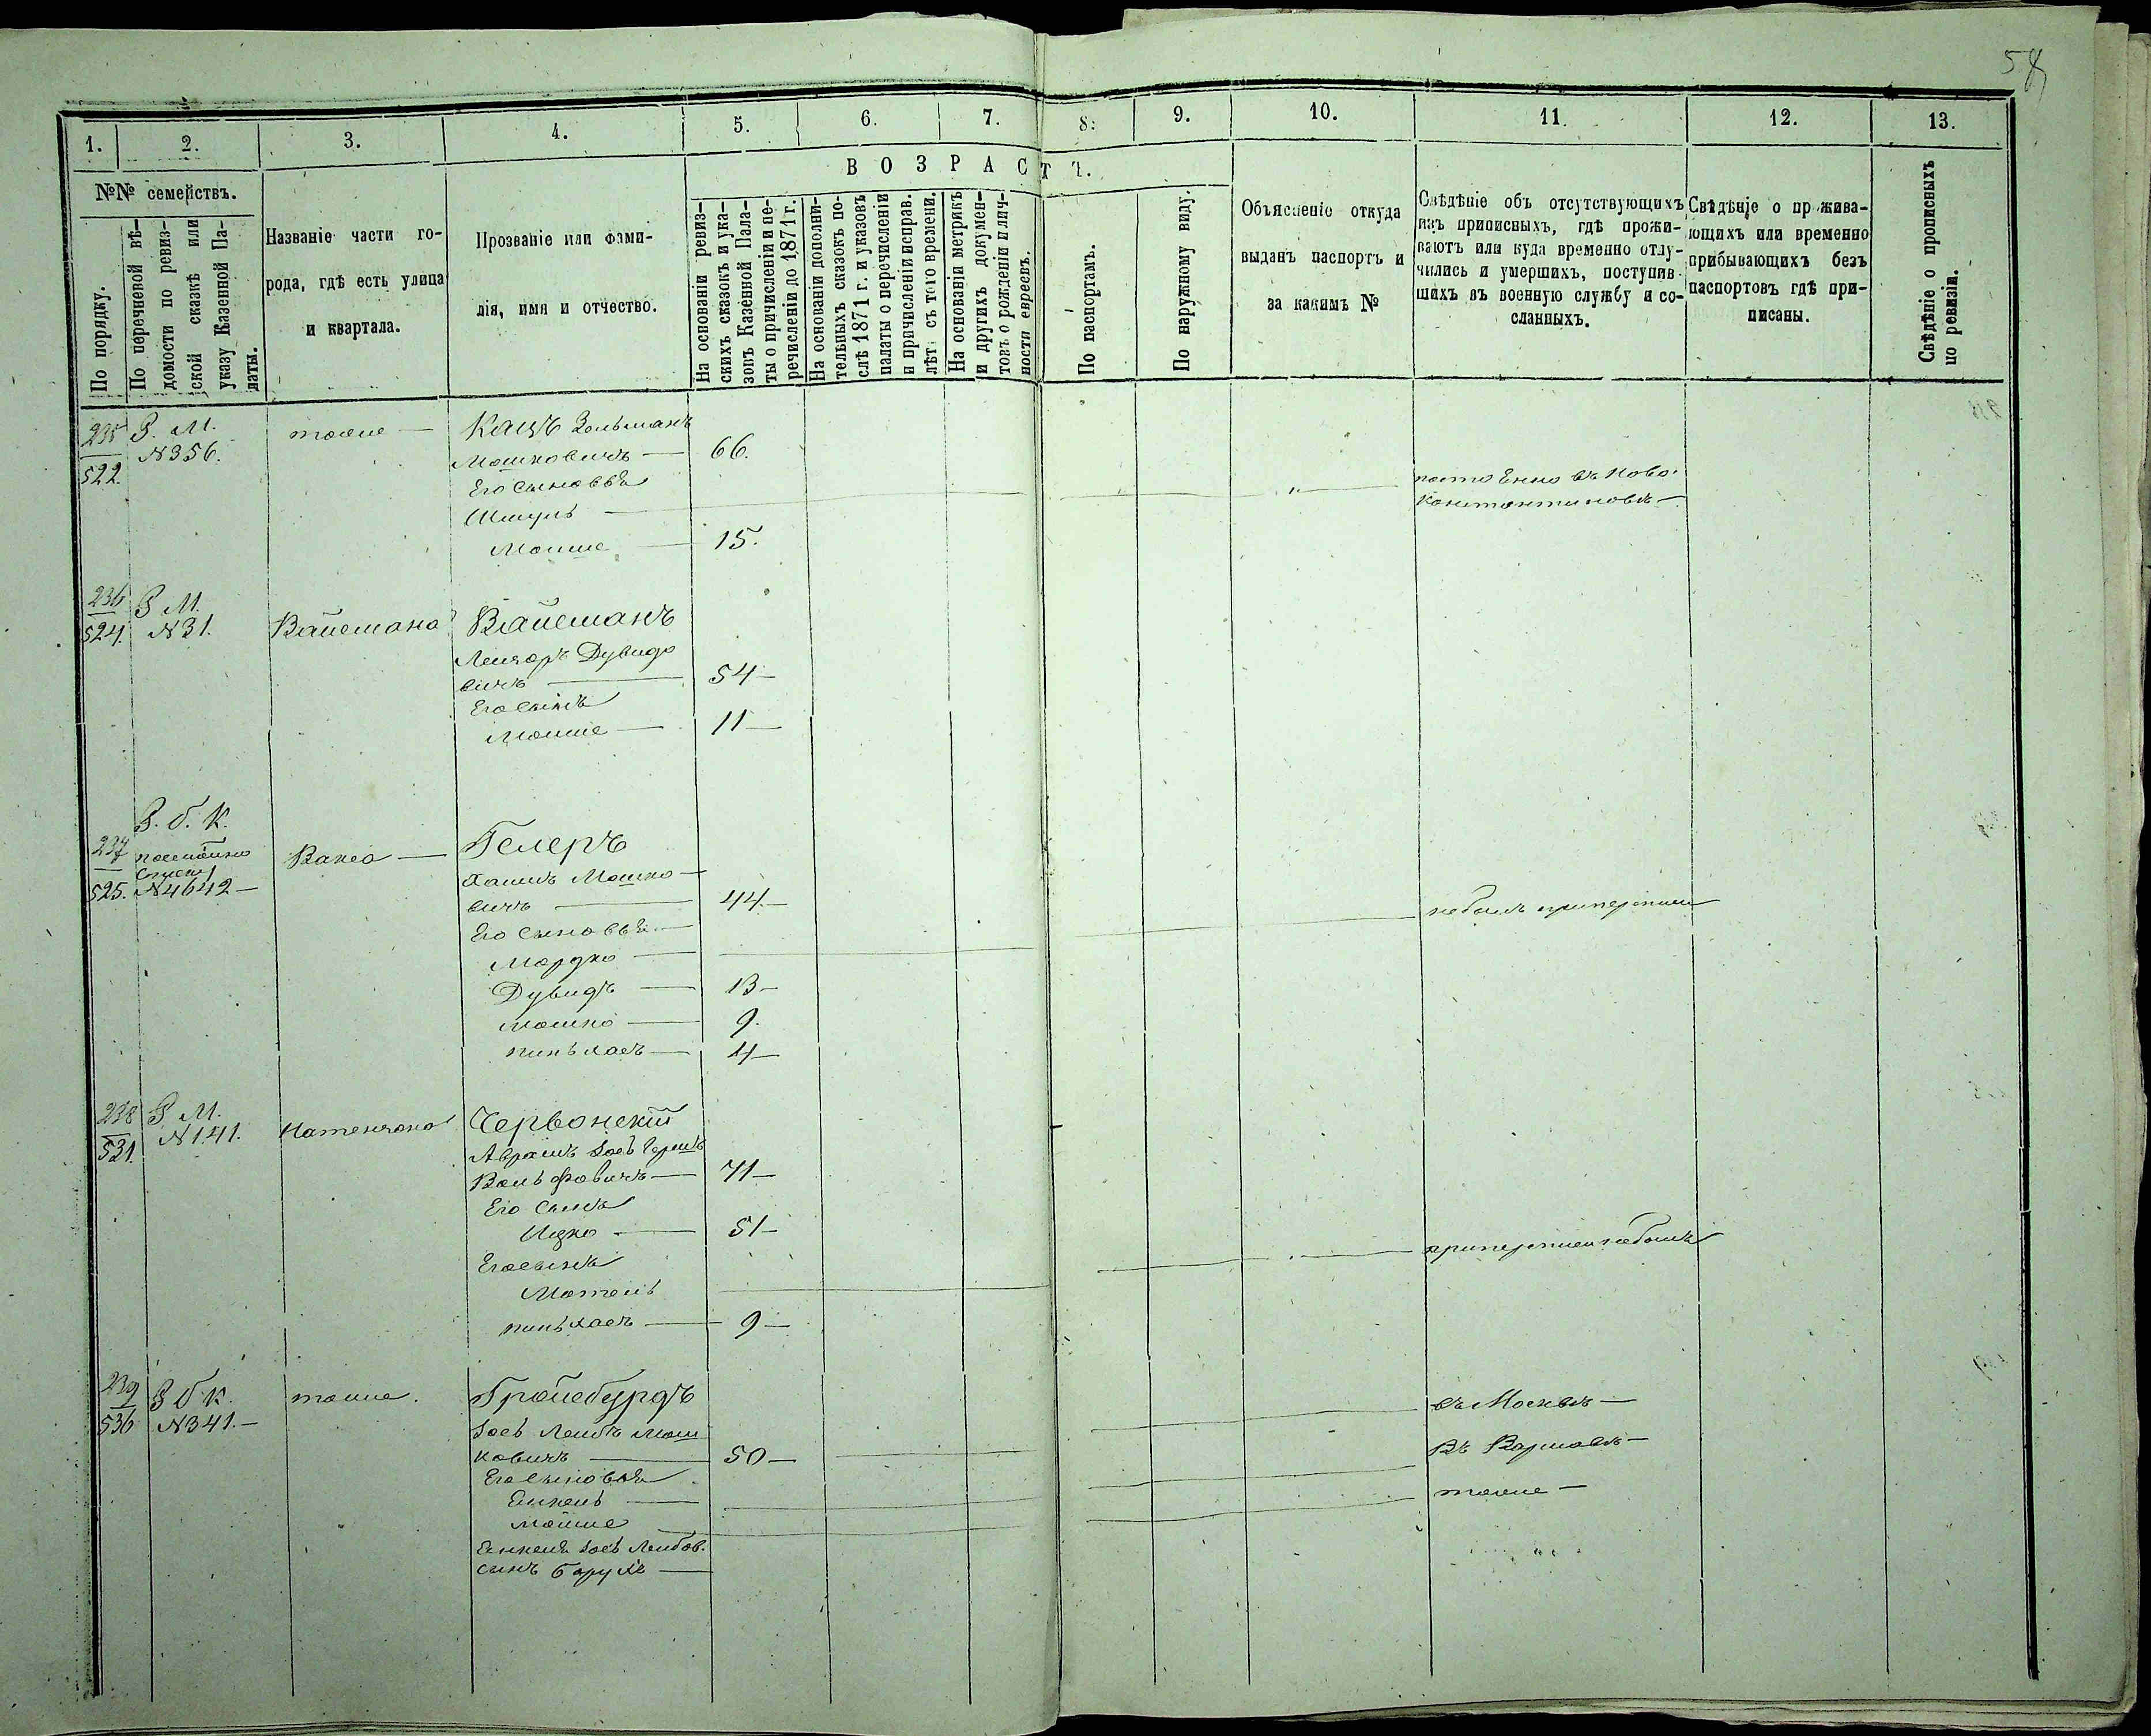 58
1. 2. 3. 4. 5. 6. 7. 8. 9. 10. 11. 12. 13.
№№ семействъ.
По порядку.
По перечневой вѣ-
домости по ревиз-
ской сказкѣ или
указу Казенной Па-
латы.
Названіе части го-
рода, гдѣ есть улица
и квартала.
Прозваніе или фами-
лія, имя и отчество.
ВОЗРАСТЪ.
На основаніи ревиз-
скихъ сказокъ и ука-
зовъ Казенной Пала-
ты о причисленіи и пе-
речисленіи до 1871 г.
На основаніи дополни-
тельныхъ сказокъ по-
слѣ 1871 г. и указовъ
палаты о перечисленіи
и причисленіи исправ.
лѣт съ того времени.
На основаніи метрикъ
и другихъ докумен-
товъ о рожденіи и лич-
ности евреевъ.
По паспортамъ.
По наружному виду.
Объясненіе откуда
выданъ паспортъ и
за какимъ №
Свѣдѣніе объ отсутствующихъ
изъ приписныхъ, гдѣ прожи-
ваютъ или куда временно отлу-
чились и умершихъ, поступив-
шихъ въ военную службу и со-
сланныхъ.
Свѣдѣніе о прожива-
ющихъ или временно
прибывающихъ безъ
паспортовъ гдѣ при-
писаны.
Свѣдѣніе о прописныхъ
по ревизіи.
235
522.
З. М.
№356.
тоже —
Кацъ Зельманъ
Мошковичъ — 66.
Его сыновья
Шмуль — "
въ Ново-
константиновкѣ —
Мошке — 15.
236
524.
З М.
№31.
Вайсмана
Вайсманъ
Лейзоръ Дувидо
вичъ — 54 —
Его сынъ
Мошке — 11 —
237
525.
З. б. К.
№4642 —
Вакса —
Гелеръ
Хаимъ Мошко —
вичъ — 44 —
Его сыновья —
Мордко —
не былъ при переписи
Дувидъ — 13 —
Мошко — 9.
пинъхасъ — 4 —
238
531.
З М.
№141.
Червонскій
Аврамъ Іосъ Гершъ
Вольфовичъ — 71 —
Его сынъ
Ицко — 51 —
Его сынъ
Мотель
при переписи не былъ
пинъхасъ — 9 —
239
536
З б К.
№341. —
тоже.
Гройсбурдъ
Іось Лейбъ Мош
ковичъ — 50 —
въ Москвѣ —
Его сыновья
Янкель —
Въ Варшавѣ —
Мошке
тоже —
Янкеля Іось Лейбов.
сынъ Барухъ —